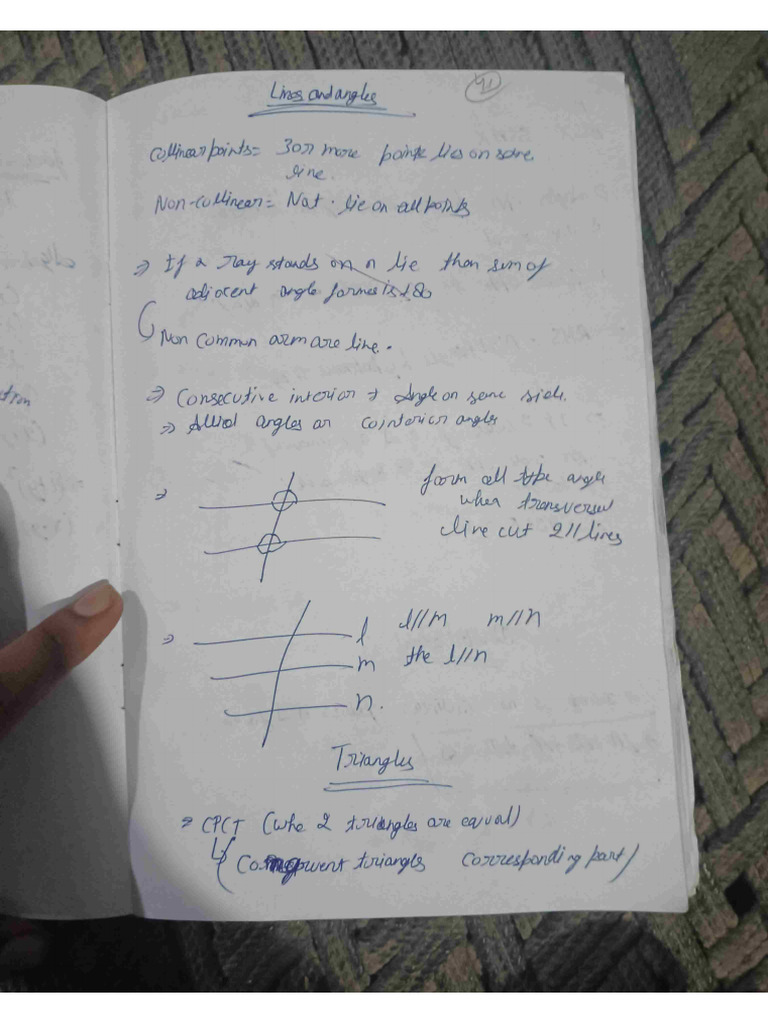 Lines and angles
41
Collinear points = 3 or more points lies on same
line.
Non-collinear = Not lie on all points
⇒ If a ray stands on a lie then sum of
adjacent angle formes is 180
Non common arm are line.
⇒ Consecutive interior ⇒ Angle on same side.
⇒ Allied angles or cointerior angles
⇒ form all type angle
when transversal
line cut 2 // lines
⇒ l l//m m//n
m the l//n
n.
Triangles
⇒ CPCT (whe 2 triangles are equal)
(Congruent triangles corresponding part)